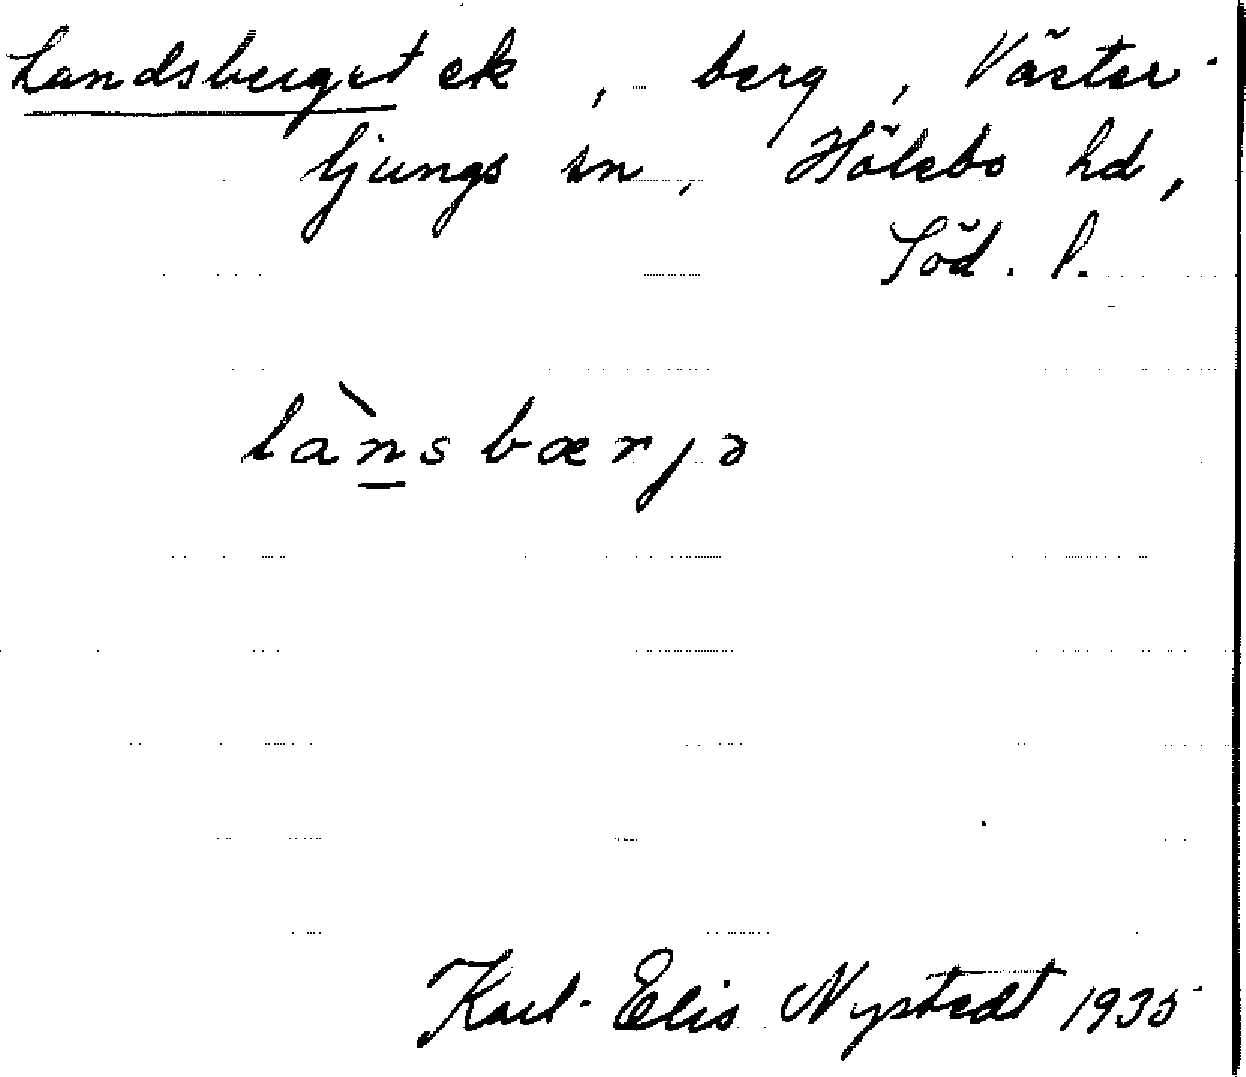 Landsberget ek, berg, Väster-
ljungs sn, Hölebo hd,
Söd. l.
lànsbærjə
Karl-Elis Nystedt 1935